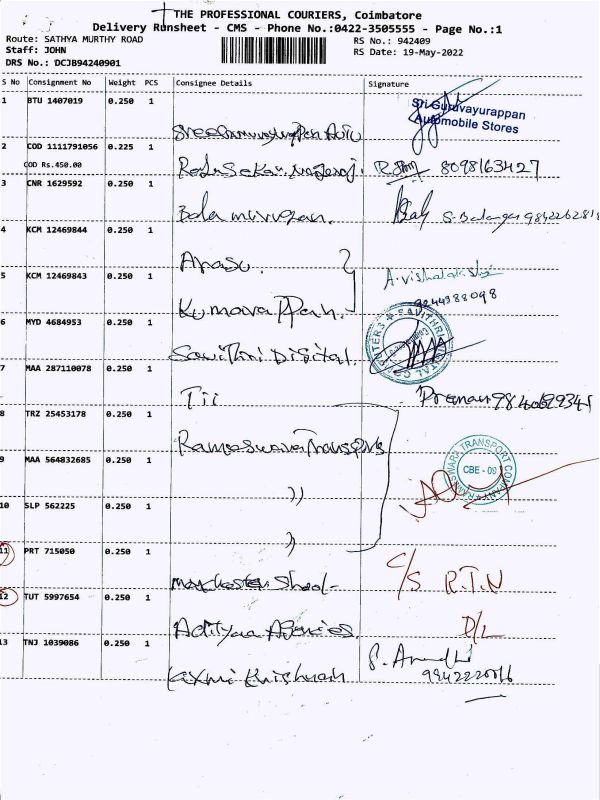 THE PROFESSIONAL COURIERS, Coimbatore
Delivery Runsheet - CMS - Phone No.:0422-3505555 - Page No.:1
Route: SATHYA MURTHY ROAD
RS No.: 942409
Staff: JOHN
RS Date: 19-May-2022
DRS No.: DCJB94240901
S No Consignment No Weight PCS Consignee Details Signature
1 BTU 1407019 0.250 1
Sri Guruvayurappan
Automobile Stores
2 COD 1111791056 0.225 1
COD Rs.450.00
8098163427
3 CNR 1629592 0.250 1
Bala murugan.
4 KCM 12469844 0.250 1
Arasu.
5 KCM 12469843 0.250 1
A. Vishalakshi
9244388098
Kumarappan.
6 MYD 4684953 0.250 1
Savithri Digital.
7 MAA 287110078 0.250 1
Tii
8 TRZ 25453178 0.250 1
Ramaswara Transports
9 MAA 564832685 0.250 1
RAMESWARA TRANSPORT COMPANY
CBE - 09
"
10 SLP 562225 0.250 1
"
11 PRT 715050 0.250 1
C/S R.T.N
Manchester Shool-
12 TUT 5997654 0.250 1
Adityaa Agencies.
D/L
13 TNJ 1039086 0.250 1
Laxmi Krishnah